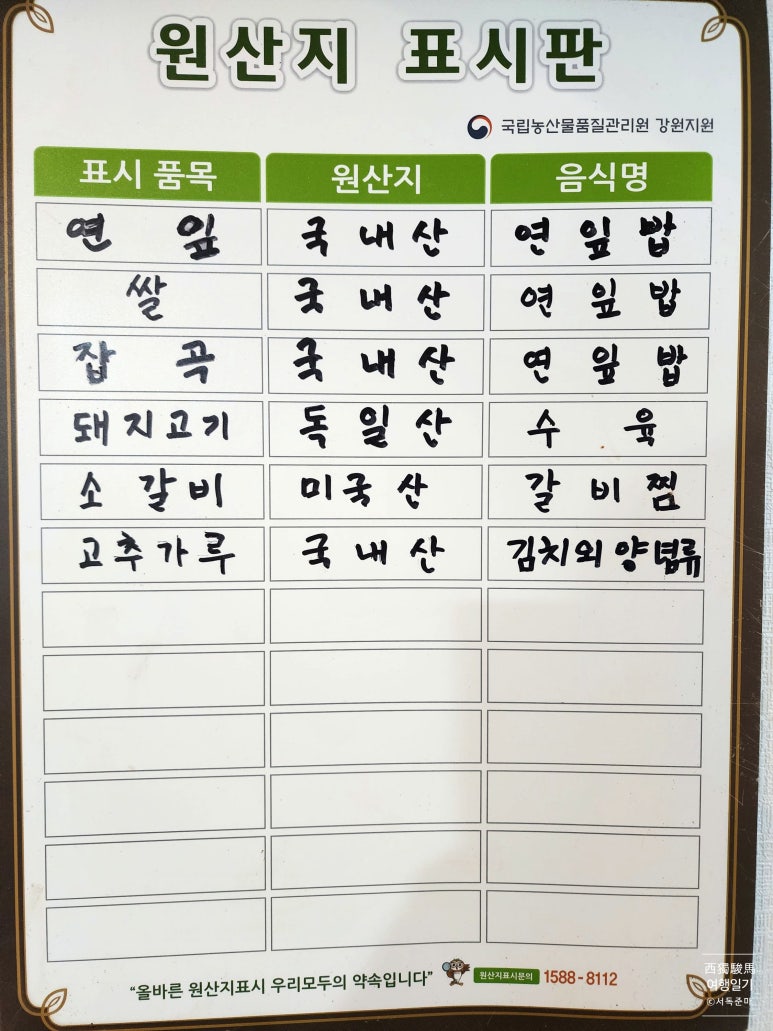 원산지 표시판
국립농산물품질관리원 강원지원
표시 품목 원산지 음식명
연 잎 국내산 연잎밥
쌀 국내산 연잎밥
잡곡 국내산 연잎밥
돼지고기 독일산 수육
소갈비 미국산 갈비찜
고추가루 국내산 김치외양념류
"올바른 원산지표시 우리모두의 약속입니다" 원산지표시문의 1588-8112
西獨駿馬
여행일기
©서독준마